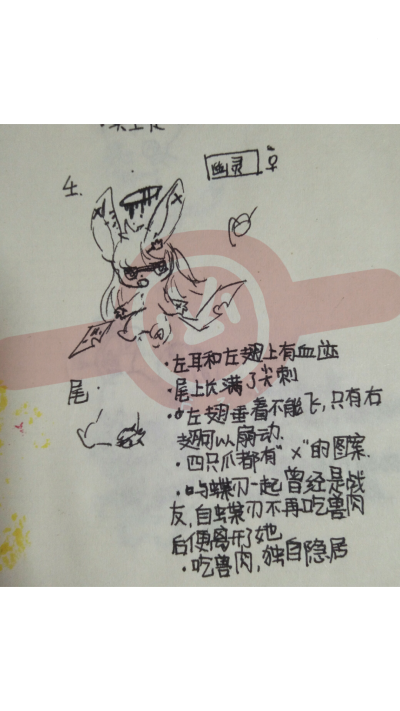 幽灵 ♀
左.
·左耳和左翅上有血迹
尾·
·尾上长满了尖刺
·左翅垂着不能飞,只有右
翅可以扇动.
·四只爪都有"x"的图案.
·与蝶刃一起曾经是战
友,自蝶刃不再吃兽肉
后便离开了她
·吃兽肉,独自隐居